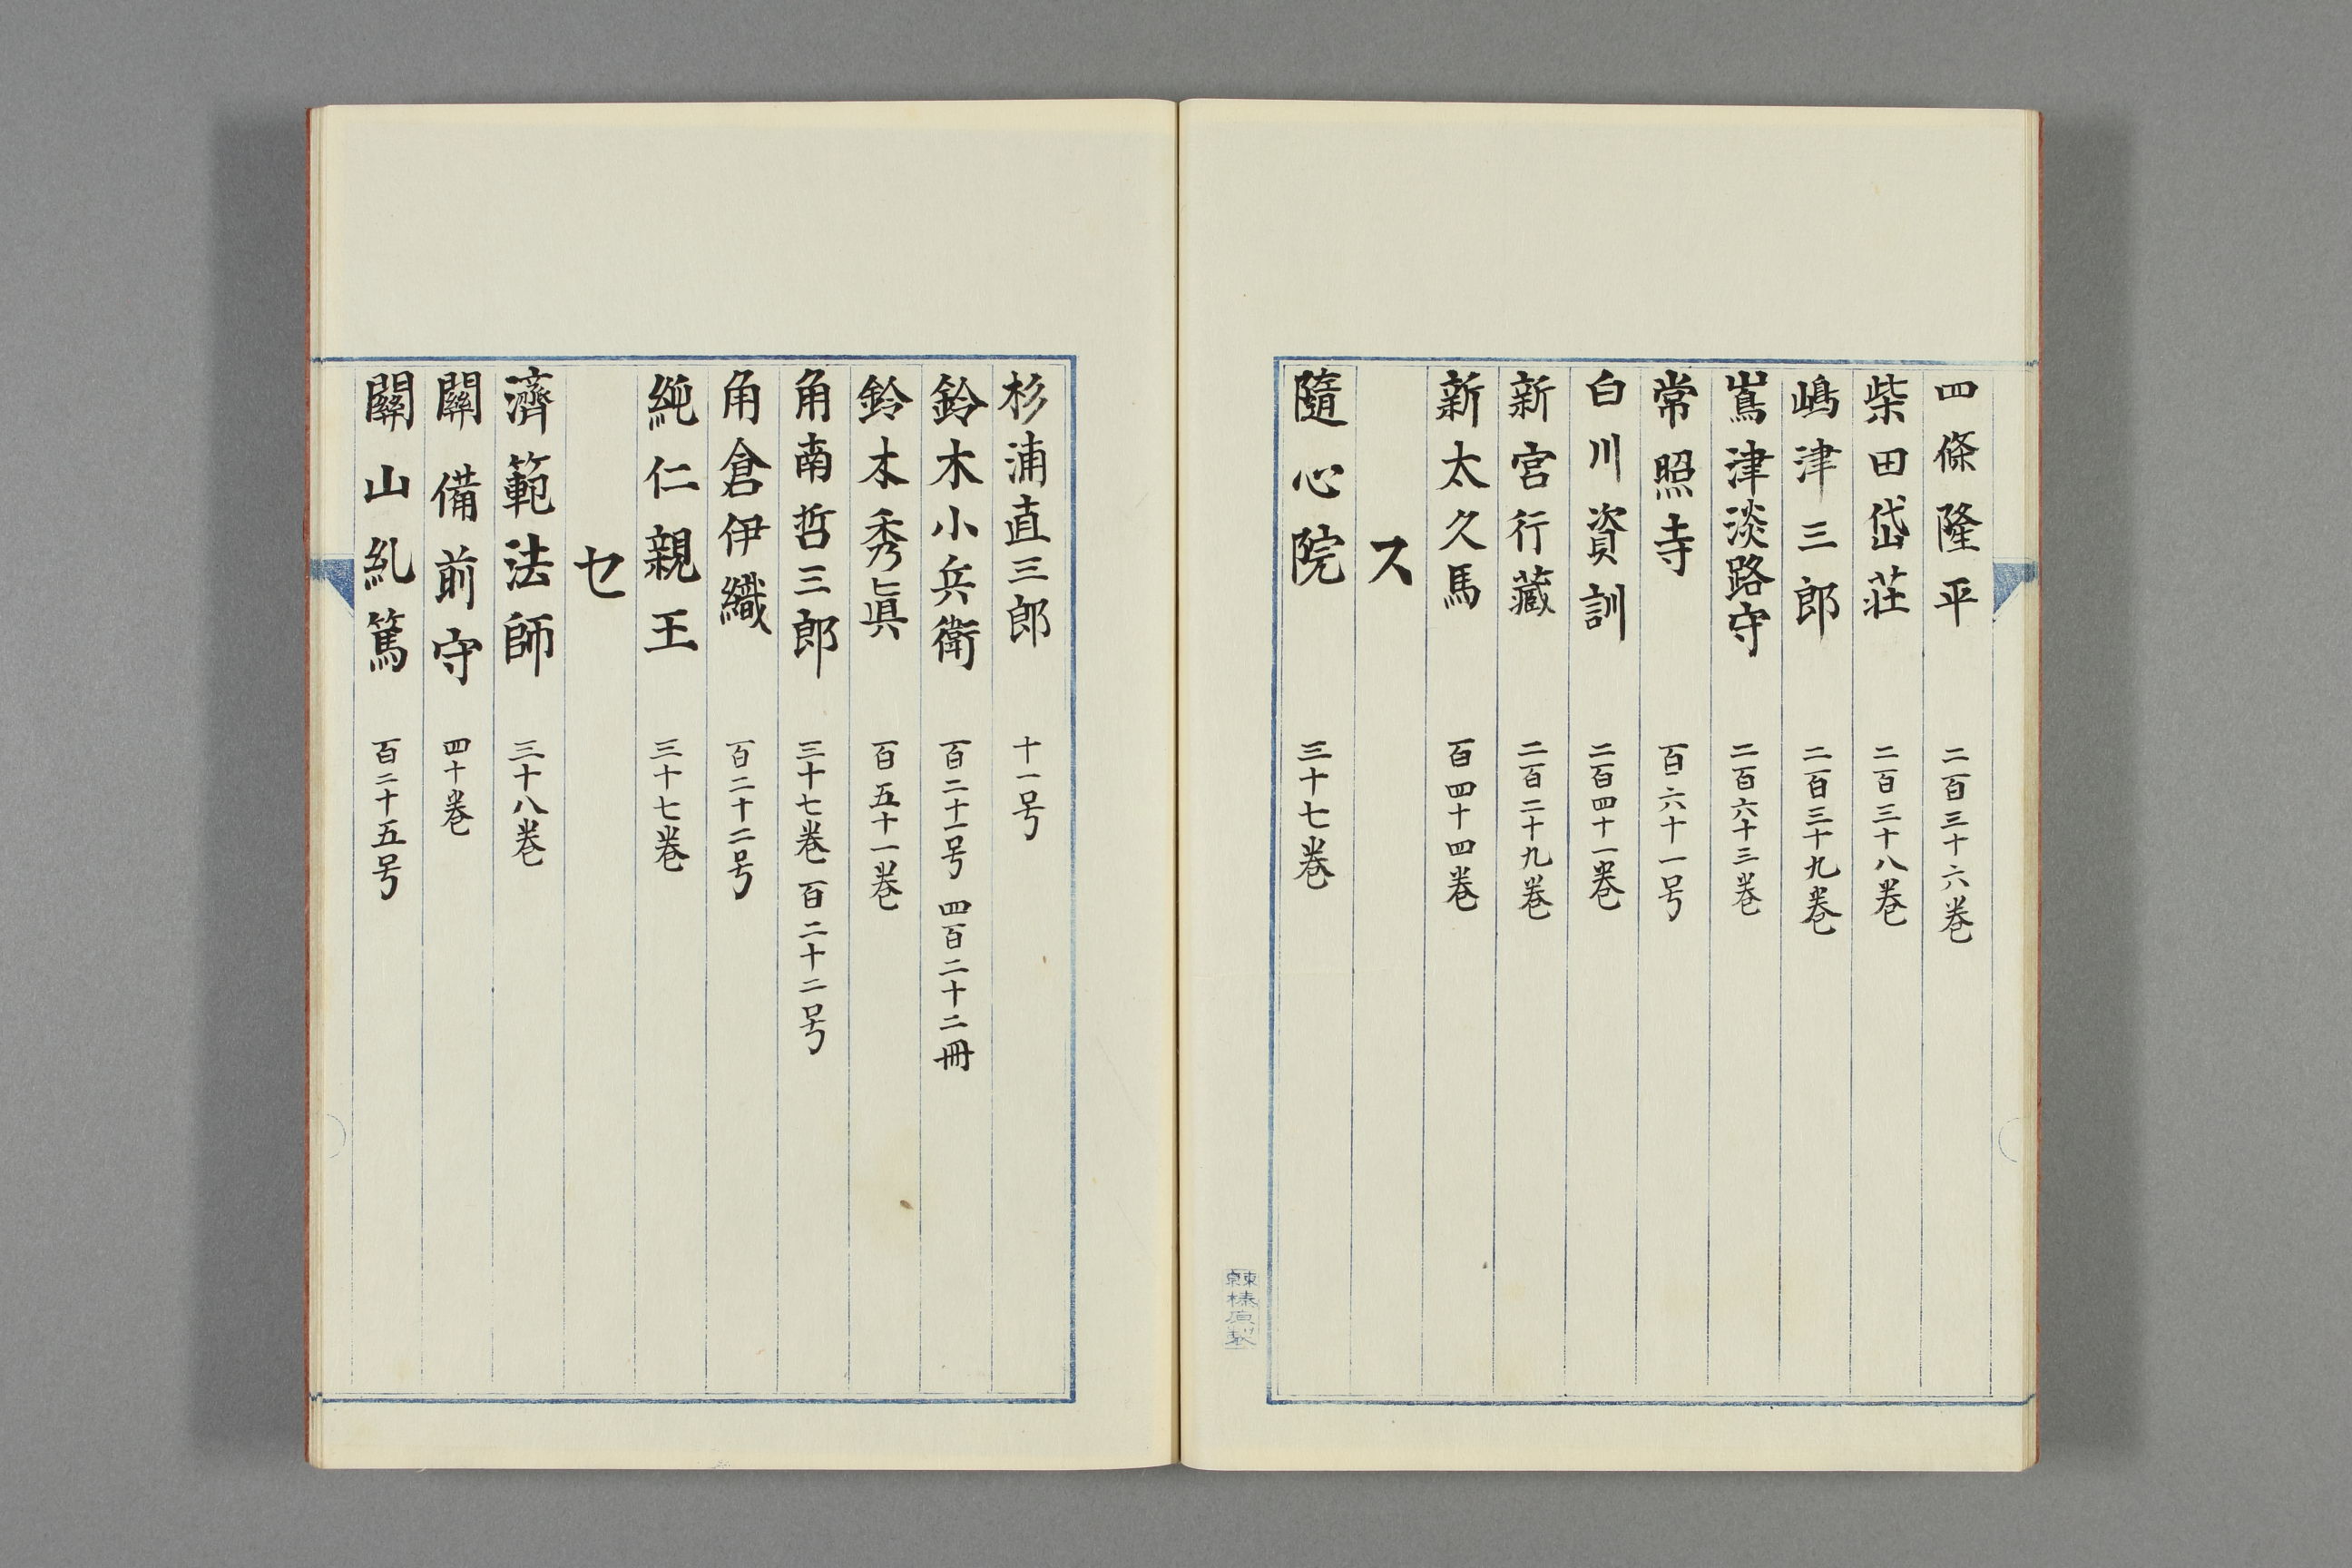 四條隆平 二百三十六巻
柴田岱荘 二百三十八巻
嶋津三郎 二百三十九巻
嶌津淡路守 二百六十三巻
常照寺 百六十一号
白川資訓 二百四十一巻
新宮行藏 二百二十九巻
新太久馬 百四十四巻
ス
隨心院 三十七巻
東京榛原製
杉浦直三郎 十一号
鈴木小兵衛 百二十一号 四百二十二冊
鈴木秀眞 百五十一巻
角南哲三郎 三十七巻 百二十二号
角倉伊織 百二十二号
純仁親王 三十七巻
セ
濟範法師 三十八巻
關備前守 四十巻
關山糺篤 百二十五号